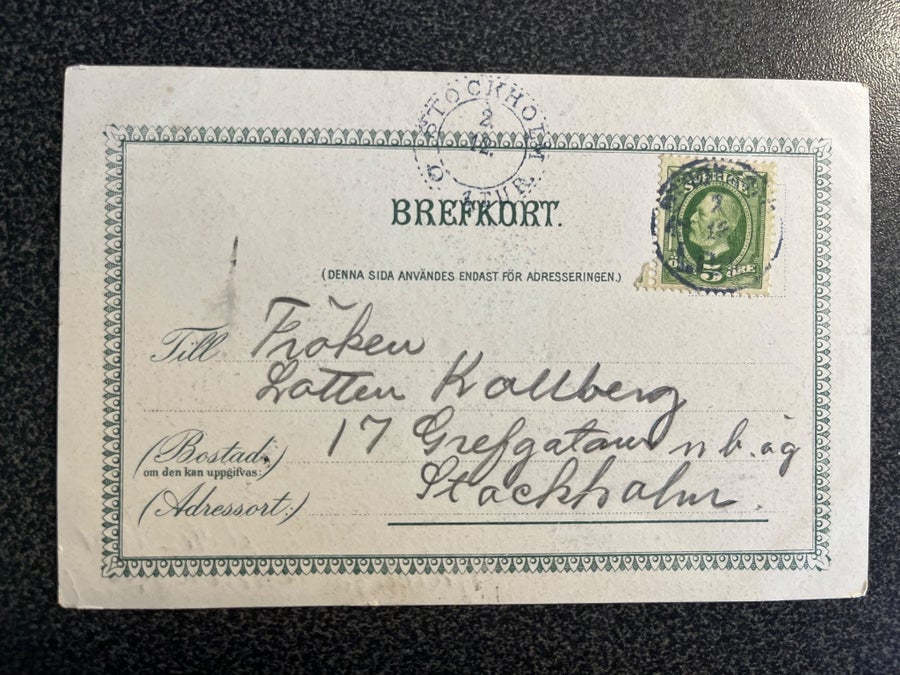 STOCKHOLM
2
12.
1 TUR. K
BREFKORT.
SVERIGE
2
12
5 ÖRE
(DENNA SIDA ANVÄNDES ENDAST FÖR ADRESSERINGEN.)
Till Fröken
Lotten Kallberg
(Bostad:) 17 Grefgatan n. b. ög
om den kan uppgifvas:
(Adressort:) Stockholm.